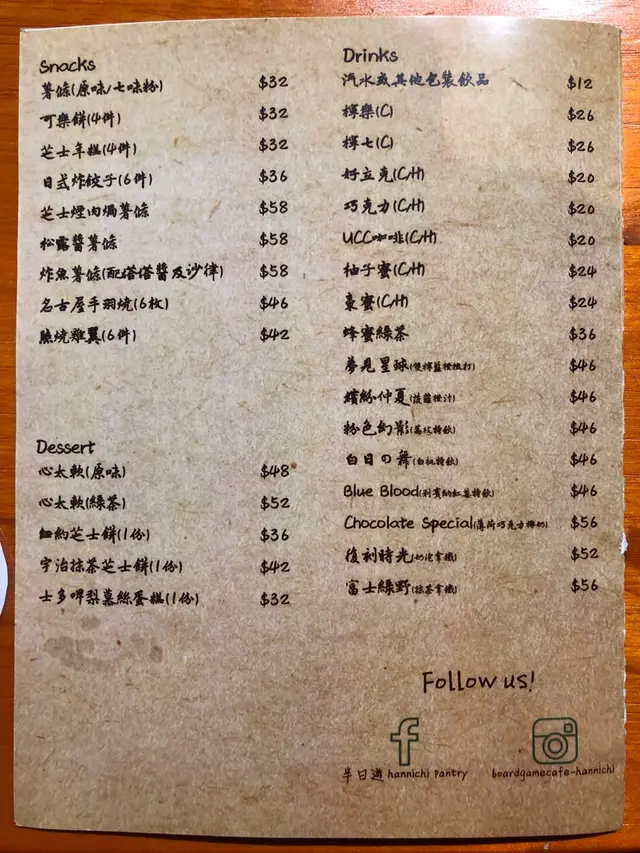 Snacks
薯條(原味/七味粉) $32
可樂餅(4件) $32
芝士年糕(4件) $32
日式炸餃子(6件) $36
芝士煙肉焗薯條 $58
松露醬薯條 $58
炸魚薯條(配塔塔醬及沙律) $58
名古屋手羽燒(6枚) $46
照燒雞翼(6件) $42
Dessert
心太軟(原味) $48
心太軟(綠茶) $52
紐約芝士餅(1份) $36
宇治抹茶芝士餅(1份) $42
士多啤梨慕絲蛋糕(1份) $32
Drinks
汽水或其他包裝飲品 $12
檸樂(C) $26
檸七(C) $26
好立克(C/H) $20
巧克力(C/H) $20
UCC咖啡(C/H) $20
柚子蜜(C/H) $24
棗蜜(C/H) $24
蜂蜜綠茶 $36
夢見星球(雙檸藍橙梳打) $46
繽紛仲夏(菠蘿橙汁) $46
粉色幻影(荔枝特飲) $46
白日の舞(白桃特飲) $46
Blue Blood(利賓納紅莓特飲) $46
Chocolate Special(薄荷巧克力椰奶) $56
復刻時光(奶泡拿鐵) $52
富士綠野(抹茶拿鐵) $56
Follow us!
半日遊 hannichi pantry
boardgamecafe-hannichi